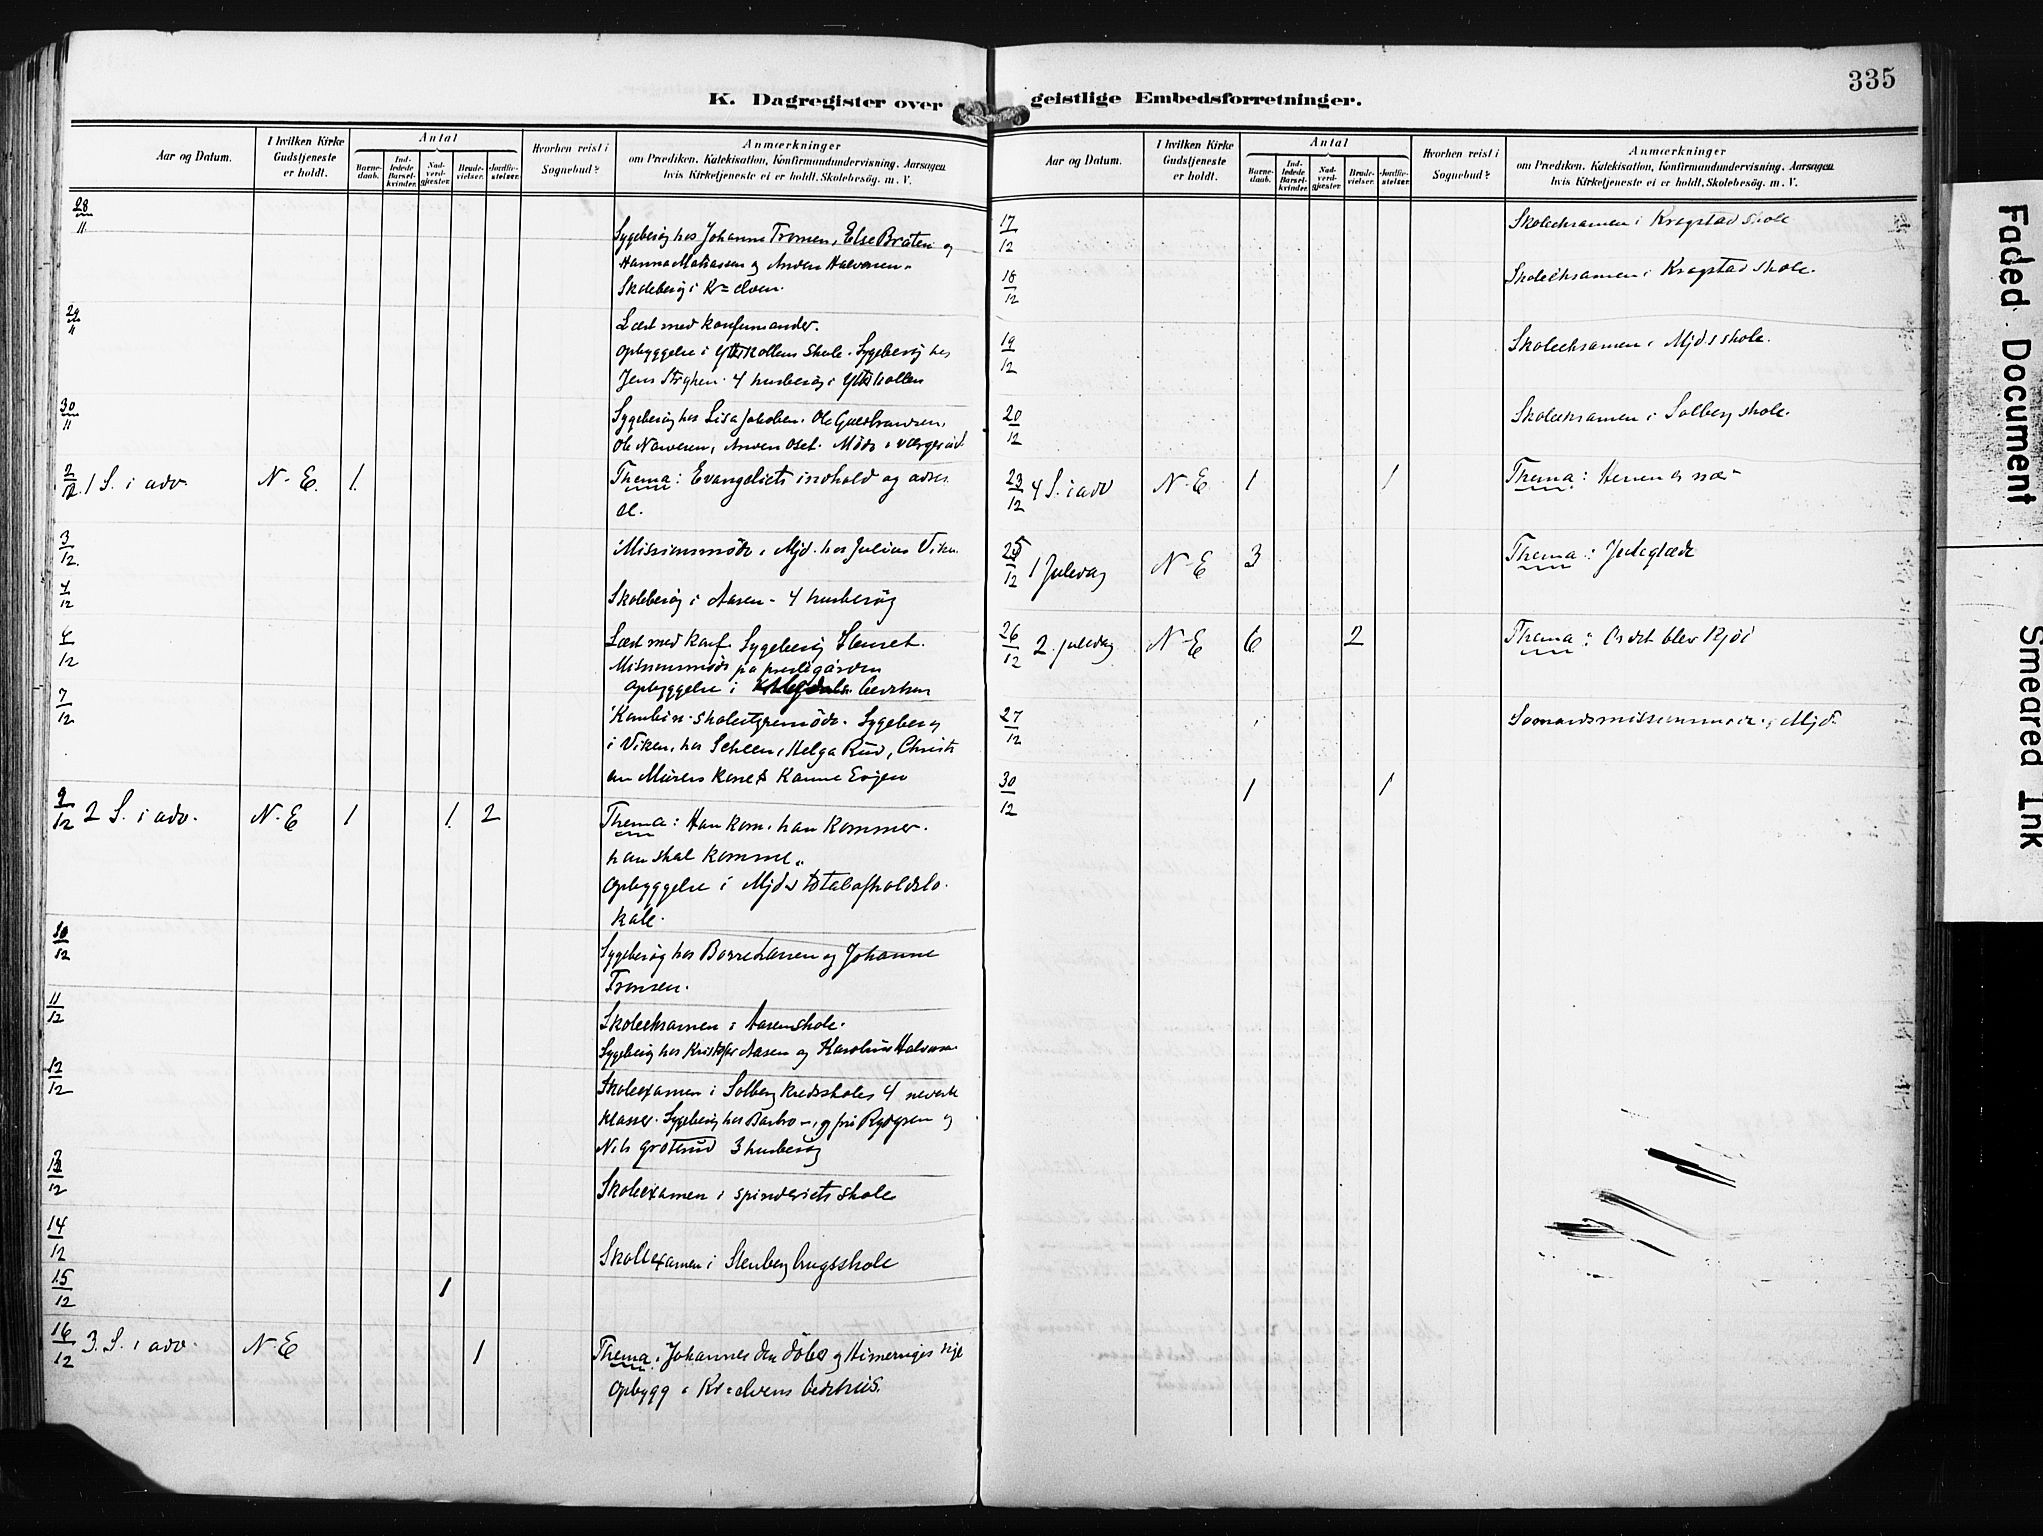 K. Dagregister over geistlige Embedsforretninger.
335
Aar og Datum.
I hvilken Kirke Gudstjeneste er holdt.
Antal
Barne-daab.
Ind-ledede Barsel-kvinder.
Nad-verd-gjæster.
Brude-vielser.
Jordfæ-stelser.
Hvorhen reist i Sognebud?
Anmærkninger
om Prædiken, Katekisation, Konfirmandundervisning, Aarsagen
hvis Kirketjeneste ei er holdt, Skolebesög, m. V.
28/11
Sygebesög hos Johanne Tronsen, Else Bråten og
Hanna Matiassen og Anders Halvorsen.
Skolebesög i Kr=elven.
29/11
Læst med konfirmander.
Opbyggelse i Yttrkollens Skole. Sygebesög hos
Jens 4 husbesög i Yttrkollen
30/11
Sygebesög hos Lisa Jakobsen, Ole Gulbrandsen,
Ole
2/12 1 S. i adv N.E. 1.
Thema: Evangeliets indhold og adres
se.
3/12.
Missionsmöde i Mjd. hos Julius Viken
4/12
Skolebesög i Aasen - 4 husbesög
6/12
Læst med konf. Sygebesög
Missionsmöde på prestegården
Opbyggelse i
7/12
Sygebesög
i Viken, hos Scheen, Helga Rud,
9/12 2 S. i adv. N.E 1 1. 2
Thema: Han kom, han kommer.
han skal komme.
Opbyggelse i Mjd's totalafholdslo-
kale.
10/12
Sygebesög hos Larsen og Johanne
Tronsen.
11/12
Skoleeksamen i Aasenskole.
Sygebesög hos Kristofer Aasen og Karoline Halvorsen
12/12
Skoleexamen i Solberg kredsskoles 4 nederste
klasser. Sygebesög hos og
Nils Groterud 3 husbesög
13/12
Skoleexamen i spinderiets skole
14/12
Skoleexamen i Stenberg brugsskole
15/12 1
16/12 3. S. i adv. N.E 1
Thema: Johannes den döber og Himeriges rige
Opbygg i Kr=elvens bedehus.
Aar og Datum.
I hvilken Kirke Gudstjeneste er holdt.
Antal
Barne-daab.
Ind-ledede Barsel-kvinder.
Nad-verd-gjæster.
Brude-vielser.
Jordfæ-stelser.
Hvorhen reist i Sognebud?
Anmærkninger
om Prædiken, Katekisation, Konfirmandundervisning, Aarsagen
hvis Kirketjeneste ei er holdt, Skolebesög, m. V.
17/12
Skoleeksamen i Krogstad skole
18/12
Skoleeksamen i Krogstad skole.
19/12
Skoleeksamen i Mjds skole.
20/12
Skoleeksamen i Solberg skole.
23/12 4 S. i adv N.E. 1 1
Thema: Herren er nær
25/12 1 Juledag N.E 3
Thema: Juleglæde
26/12 2. juledag N.E 6 2
Thema: Ordet blev kjöd
27/12
i Mjd.
30/12 1 1
Faded Document
Smeared Ink